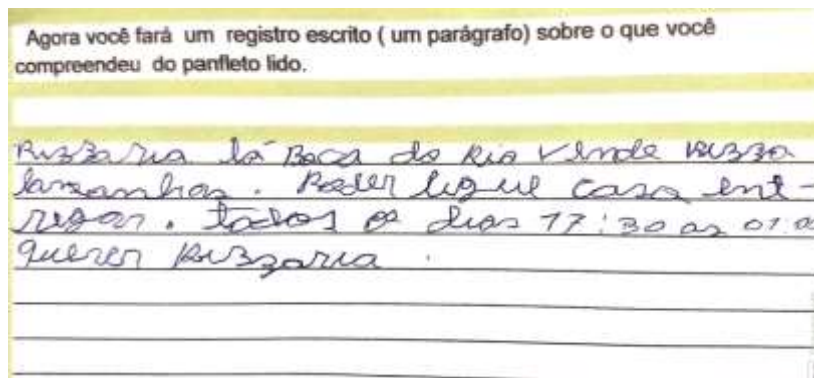 Agora você fará um registro escrito ( um parágrafo) sobre o que você
compreendeu do panfleto lido.
Pizzaria lá Boca do Rio vende pizza
lasanhas. Poder ligue casa ent-
regar. todos os dias 17:30 as 01:0
querer pizzaria.